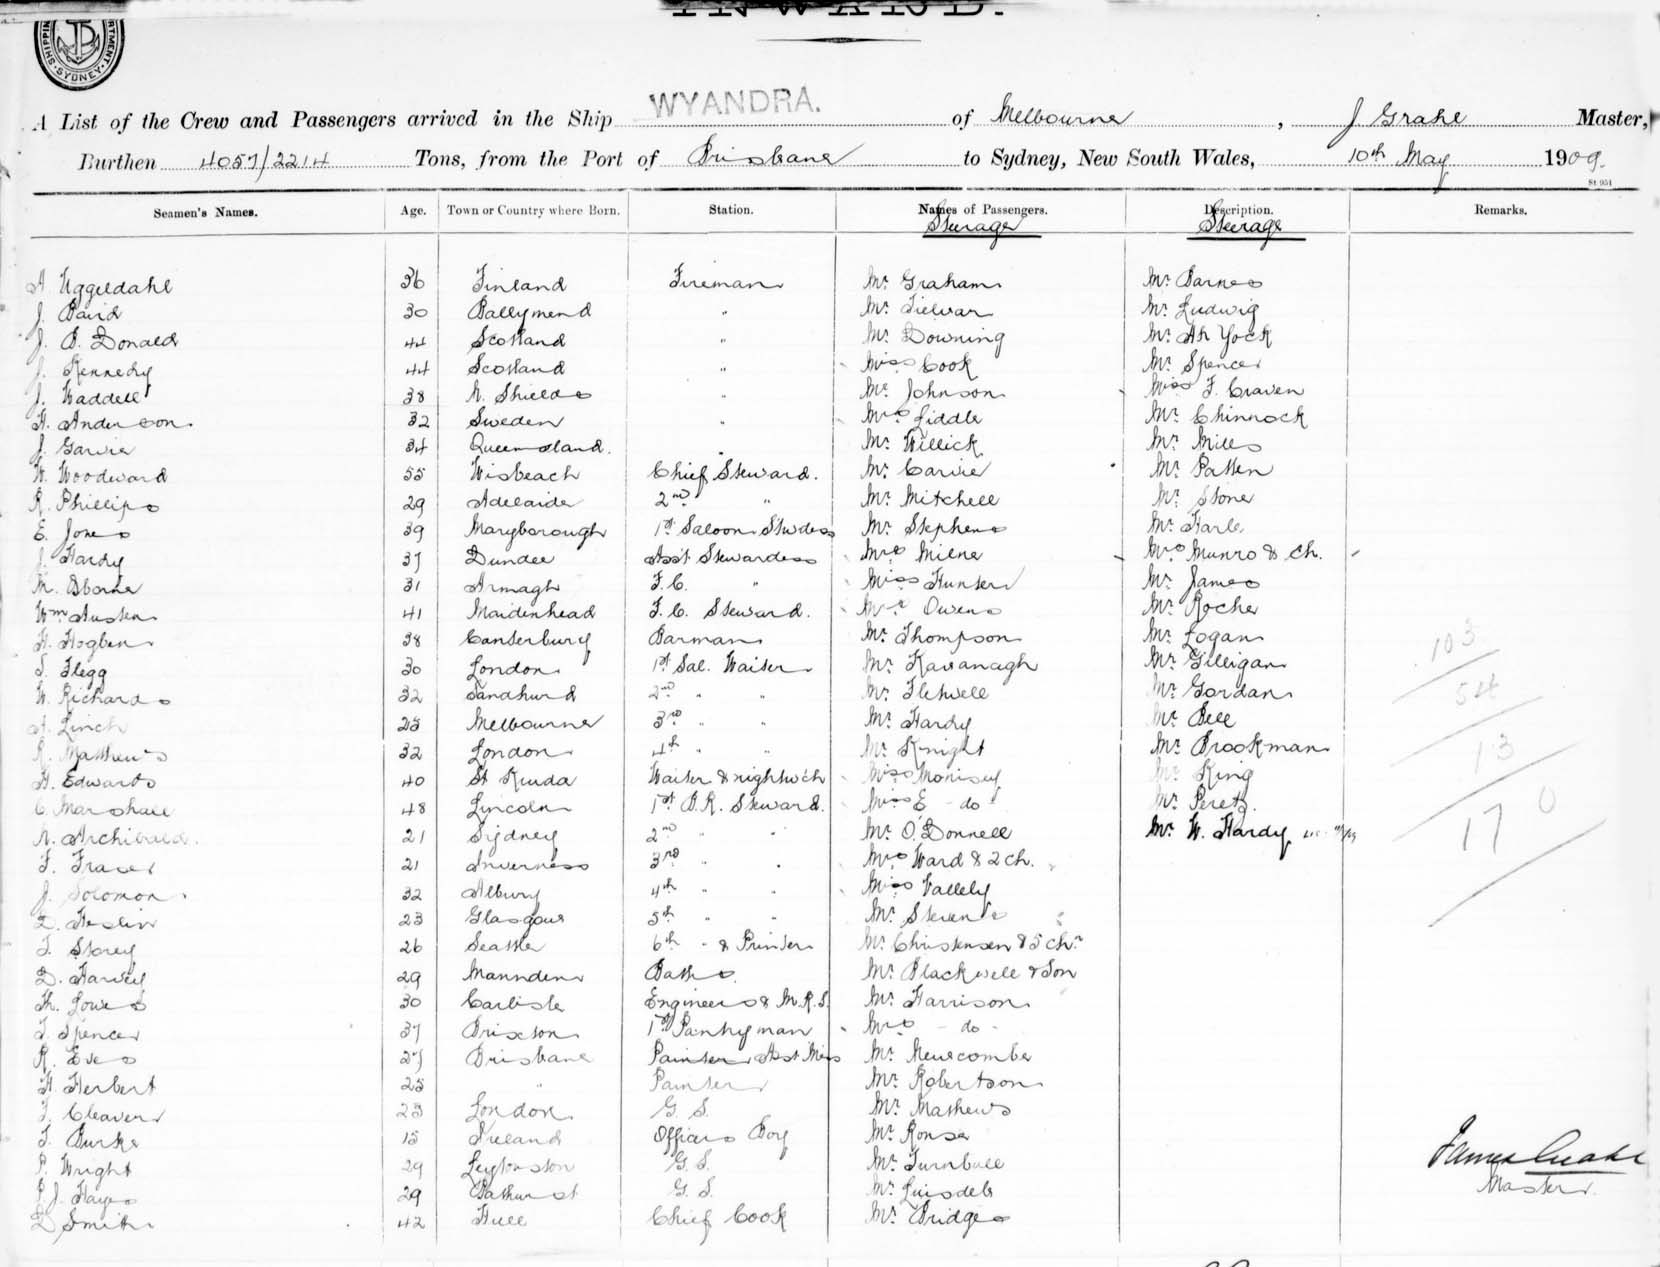 INWARD.
SHIPPING DEPARTMENT SYDNEY
A List of the Crew and Passengers arrived in the Ship WYANDRA. of Melbourne, J Grahl Master,
Burthen 4057/2214 Tons, from the Port of Brisbane to Sydney, New South Wales, 10th May 1909.
St 951
Seamen's Names. Age. Town or Country where Born. Station. Names of Passengers. Description. Remarks.
Steerage Steerage
A Uggeldahl 36 Finland Fireman Mr Graham Mr Barnes
J. Baird 30 Ballymend " Mr Tielvar Mr Ludwig
J. B. Donald 44 Scotland " Mr Downing Mr Ah Yock
J. Kennedy 44 Scotland " Miss Cook Mr Spencer
J. Waddell 38 N. Shields " Mr Johnson Miss F. Craven
H. Anderson 32 Sweden " Mrs Liddle Mr Chinnock
J. Garvie 34 Queensland. " Mr Willick Mr Mills
W. Woodward 55 Wisbeach Chief Steward. Mr Carvie Mr Patten
R. Phillips 29 Adelaide 2nd " Mr Mitchell Mr Stone
E. Jones 39 Maryborough 1st Saloon Stwdess Mr Stephens Mr Harle
J. Hardy 37 Dundee Asst Stewardess Mrs Milne Mrs Munro & Ch.
M. Osborne 31 Armagh F.C. " Miss Hunter Mr James
Wm Austen 41 Maidenhead F.C. Steward. Owens Mr Rocher
H. Hogben 38 Canterbury Barman Mr Thompson Mr Logan
S. Flegg 30 London 1st Sal. Waiter Mr Kavanagh Mr Gilligan
W. Richards 32 Sandhurd 2nd " " Mr Fletwell Mr Gordan
A. Linch 25 Melbourne 3rd " " Mr Hardy Mr Bell
R. Matthews 32 London 4th " " Mr Knight Mr Brookman
H. Edwards 40 St Kilda Waiter & nightwch Miss Morisey Mr King
C. Marshall 48 Lincoln 1st B.R. Steward. Miss E - do - Mr Peretz.
A. Archibald. 21 Sydney 2nd " " Mr O'Donnell Mr W. Hardy
F. Fraser 21 Inverness 3rd " " Mrs Ward & 2 ch.
J. Solomon 32 Albury 4th " " Miss Vallely
Heslin 23 Glasgow 5th " " Mr Stevens
T. Storey 26 Seattle 6th " & Printer Mr Christensen & 5 chn
D. Harvey 29 Mannden Baths. Mr Blackwell & Son
Th. Lowes 30 Carlisle Engineers & M.R.S. Mr Harrison
T. Spencer 37 Brixton 1st Pantryman Mrs - do -
R. Eves 27 Brisbane Painter Asst Mess Mr Newcombe
H. Herbert 25 " Painter Mr Robertson
F. Cleaver 23 London G. S. Mr Mathews
T. Burke 15 Ireland Officers Boy Mr Ronse
P. Wright 29 Leytonston G. S. Mr Turnbull
P. J. Hayes 29 Bathurst G. S. Mr Luisdels
D Smith 42 Hull Chief Cook Mr Bridges
103
54
13
170
James Grahl
Master.